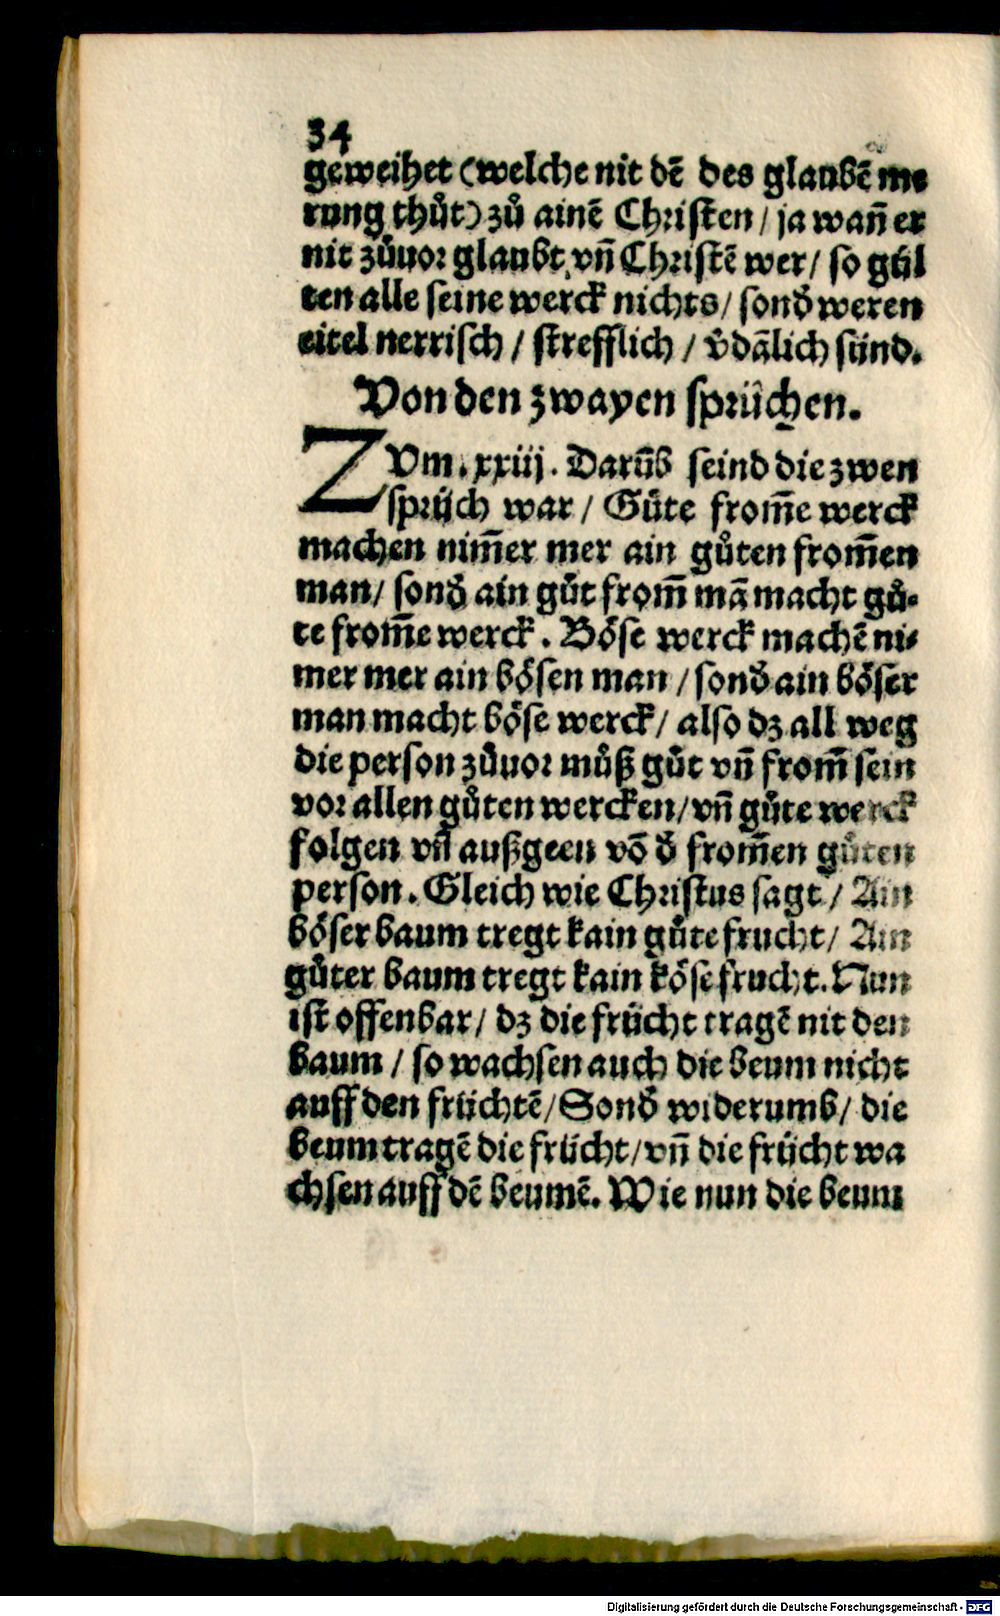 34
geweihet (welche nit dē des glaubē me
rung thůt) zů ainē Christen / ja wañ er
nit zůuor glaubt, vñ Christē wer / so gül
ten alle seine werck nichts / sond̄ weren
eitel nerrisch / strefflich / v̄dālich sünd.
Von den zwayen sprüchen.
ZVm. xxiij. Darūb seind die zwen
sprüch war / Gůte from̄e werck
machen nim̄er mer ain gůten from̄en
man / sond̄ ain gůt from̄ mā macht gů-
te from̄e werck. Böse werck machē ni-
mer mer ain bösen man / sond̄ ain böser
man macht böse werck / also dz all weg
die person zůuor můß gůt vñ from̄ sein
vor allen gůten wercken / vñ gůte werck
folgen vñ außgeen vō d̄ from̄en gůten
person. Gleich wie Christus sagt / Ain
böser baum tregt kain gůte frucht / Ain
gůter baum tregt kain köse frucht. Nun
ist offenbar / dz die frücht tragē nit den
baum / so wachsen auch die beum nicht
auff den früchtē / Sond̄ widerumb / die
beum tragē die frücht / vñ die frücht wa
chsen auff dē beumē. Wie nun die beum
Digitalisierung gefördert durch die Deutsche Forschungsgemeinschaft - DFG